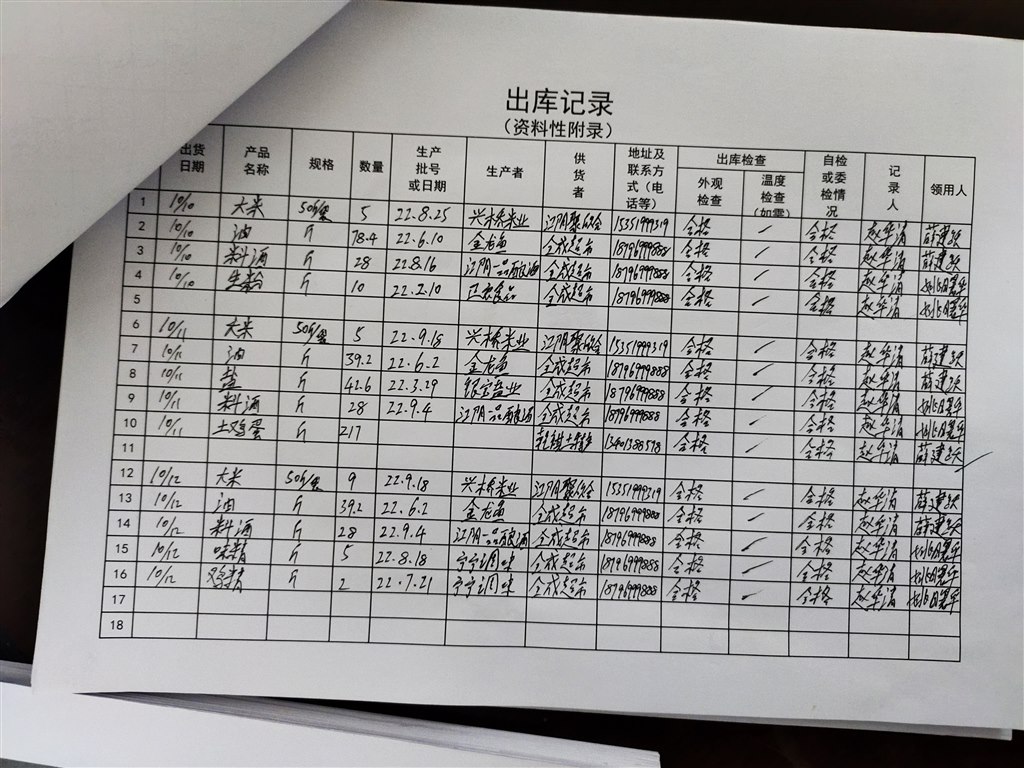 出库记录
（资料性附录）
出货日期 产品名称 规格 数量 生产批号或日期 生产者 供货者 地址及联系方式（电话等） 出库检查 外观检查 温度检查（如需） 自检或委检情况 记录人 领用人
1 10/10 大米 50斤/袋 5 22.8.25 兴桥米业 15351999319 合格 ✓ 合格 赵华清 薛建跃
2 10/10 油 斤 78.4 22.6.10 金龙鱼 全成超市 18796999888 合格 ✓ 合格 赵华清 薛建跃
3 10/10 料酒 斤 28 22.8.16 全成超市 18796999888 合格 ✓ 合格 赵华清
4 10/10 生粉 斤 10 22.2.10 食品 全成超市 18796999888 合格 ✓ 合格 赵华清
5
6 10/11 大米 50斤/袋 5 22.9.18 兴桥米业 15351999319 合格 ✓ 合格 赵华清 薛建跃
7 10/11 油 斤 39.2 22.6.2 金龙鱼 全成超市 18796999888 合格 ✓ 合格 赵华清 薛建跃
8 10/11 盐 斤 42.6 22.3.29 银宝盐业 全成超市 18796999888 合格 ✓ 合格 赵华清
9 10/11 料酒 斤 28 22.9.4 全成超市 18796999888 合格 ✓ 合格 赵华清
10 10/11 土鸡蛋 斤 217 合格 ✓ 合格 赵华清 薛建跃
11
12 10/12 大米 50斤/袋 9 22.9.18 兴桥米业 15351999319 合格 ✓ 合格 赵华清 薛建跃
13 10/12 油 斤 39.2 22.6.2 金龙鱼 全成超市 18796999888 合格 ✓ 合格 赵华清 薛建跃
14 10/12 料酒 斤 28 22.9.4 全成超市 18796999888 合格 ✓ 合格 赵华清
15 10/12 味精 斤 5 22.8.18 调味 全成超市 18796999888 合格 ✓ 合格 赵华清
16 10/12 鸡精 斤 2 22.7.21 调味 全成超市 18796999888 合格 ✓ 合格 赵华清
17
18